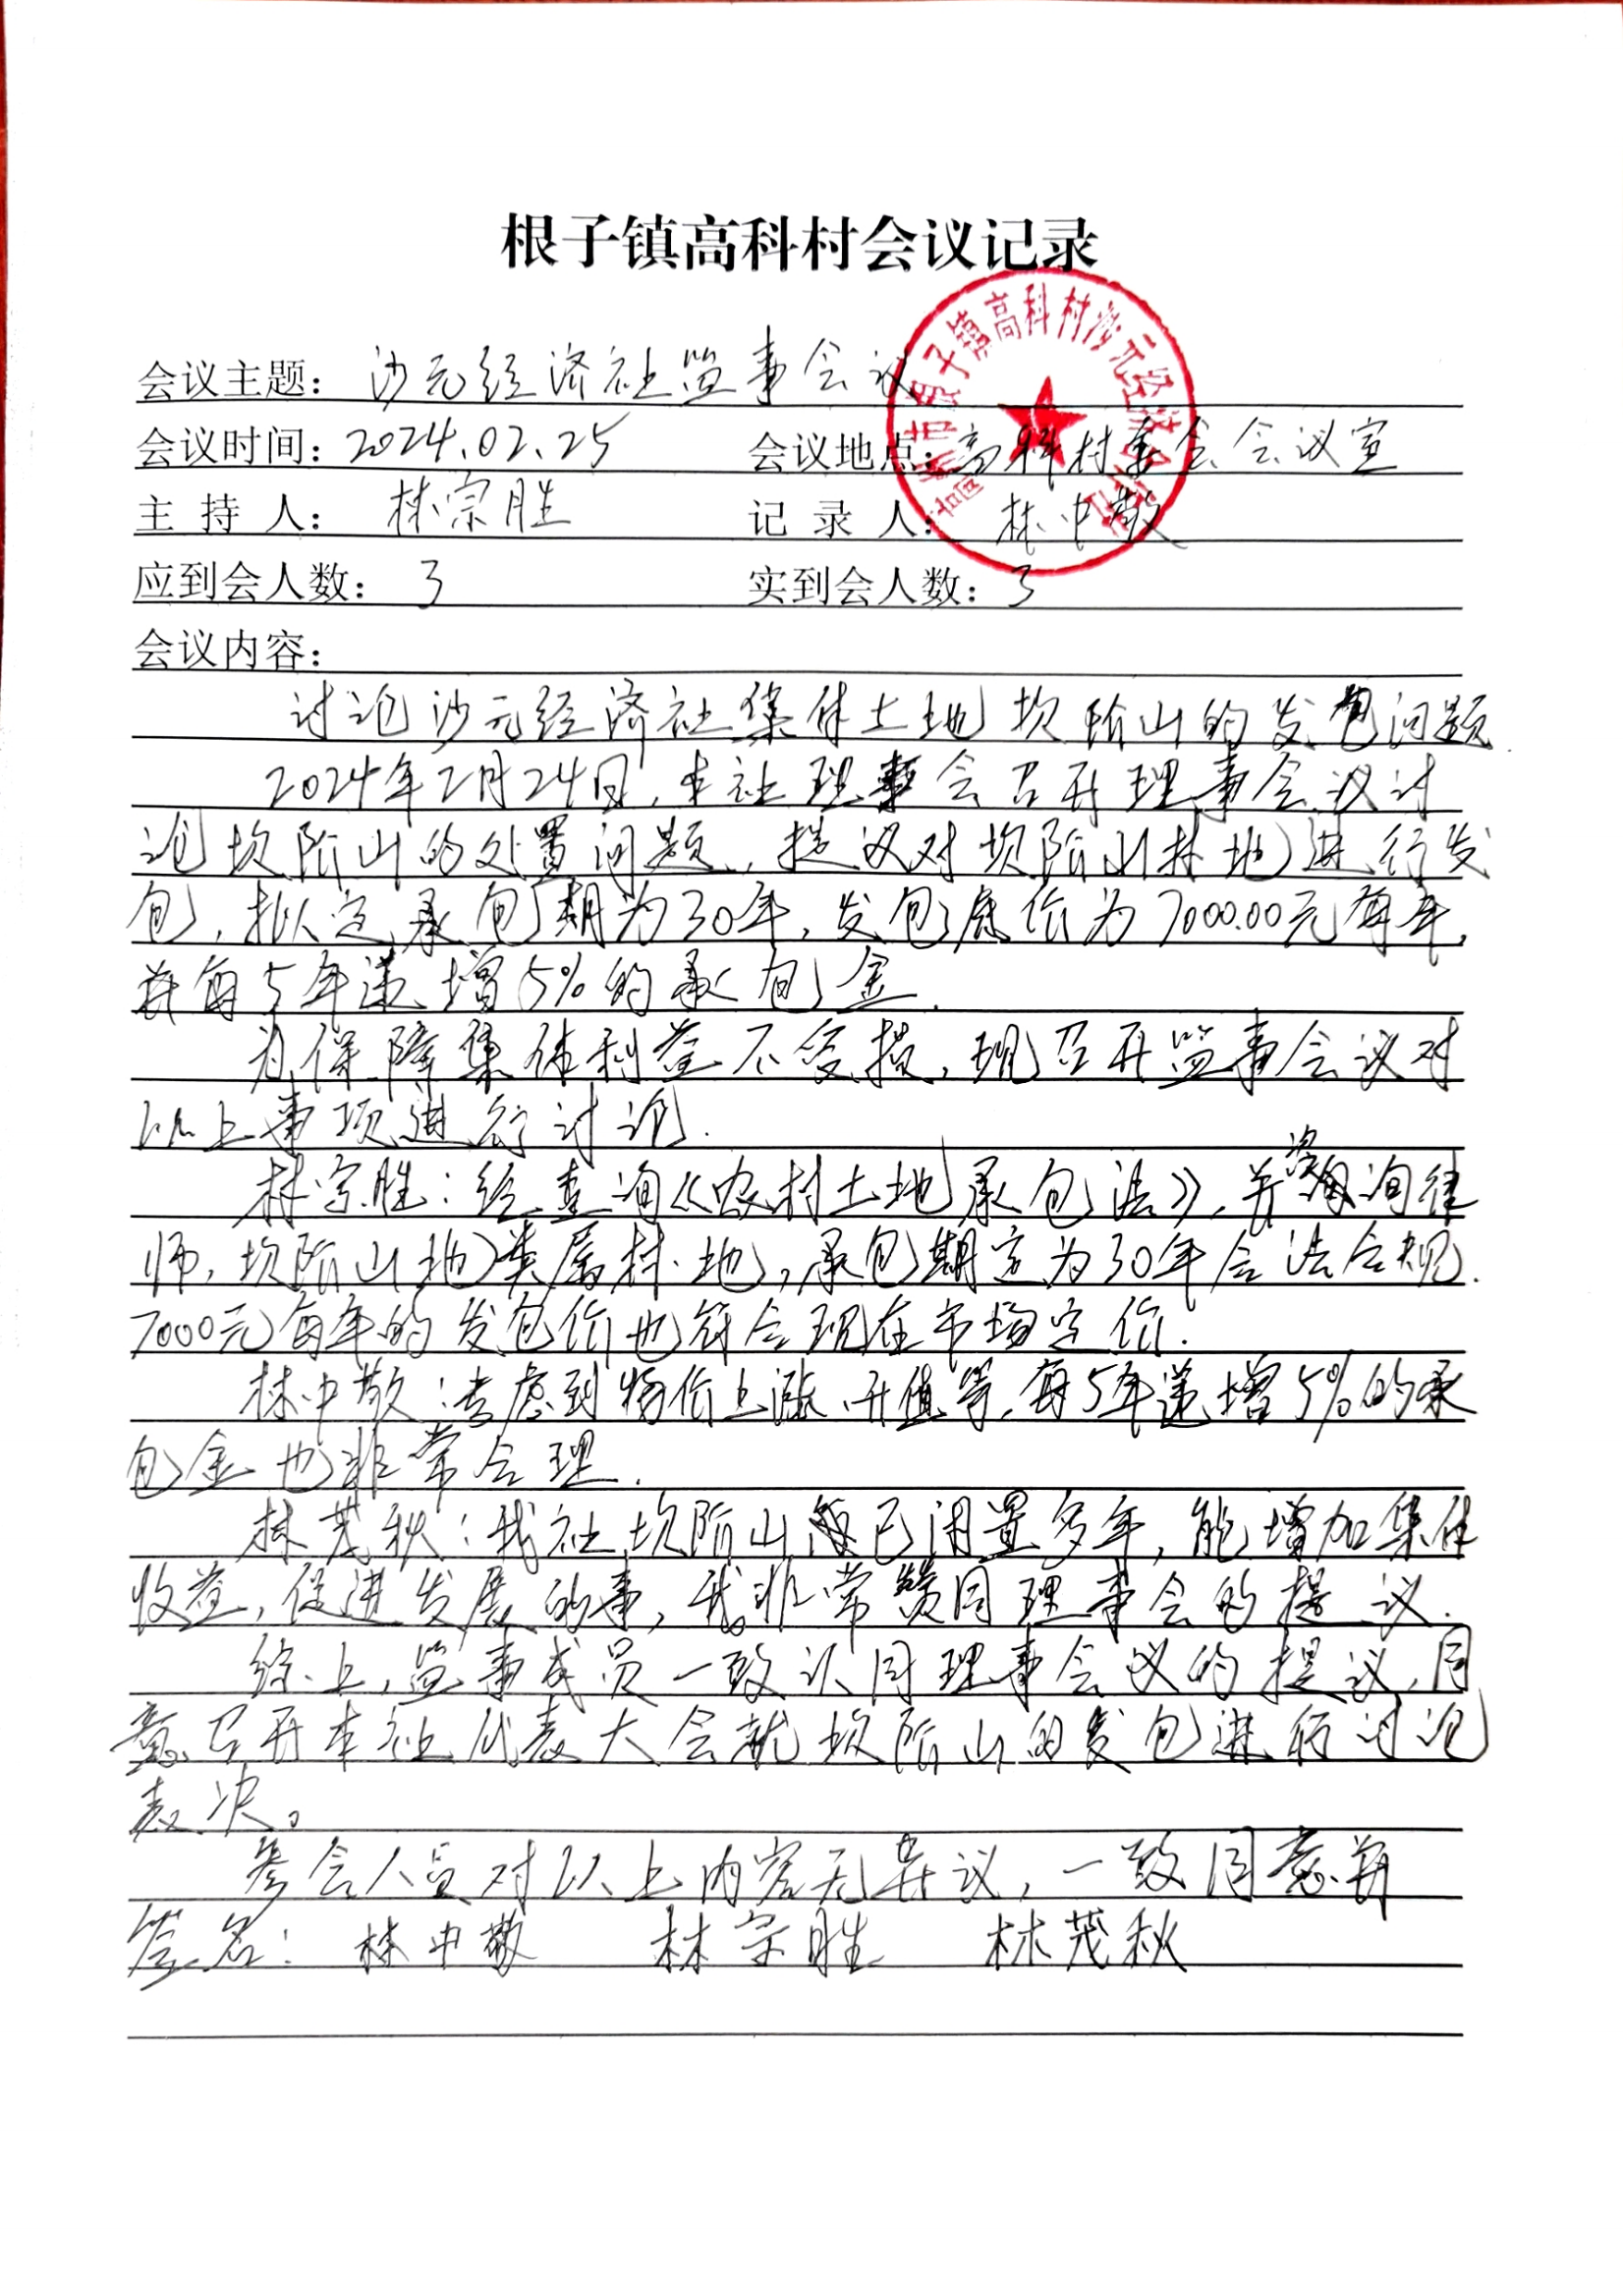 根子镇高科村会议记录
会议主题：沙元经济社监事会议
会议时间：2024.02.25 会议地点：高科村委会会议室
主持人：林宗胜 记录人：林中敬
应到会人数：3 实到会人数：3
会议内容：
讨论沙元经济社集体土地坎阶山的发包问题.
2024年2月24日,本社理事会召开理事会议讨
论坎阶山的处置问题,提议对坎阶山林地进行发
包,拟定承包期为30年,发包底价为7000.00元每年,
并每5年递增5%的承包金.
为保障集体利益不受损,现召开监事会议对
以上事项进行讨论.
林宗胜:经查询《农村土地承包法》,并咨询律
师,坎阶山地类属林地,承包期定为30年合法合规.
7000元每年的发包价也符合现在市场定价.
林中敬:考虑到物价上涨、升值等,每5年递增5%的承
包金也非常合理.
林茂秋:我社坎阶山已闲置多年,能增加集体
收益,促进发展的事,我非常赞同理事会的提议.
综上,监事成员一致认同理事会议的提议,同
意召开本社代表大会就坎阶山的发包进行讨论
表决。
参会人员对以上内容无异议,一致同意并
签名: 林中敬 林宗胜 林茂秋
镇高科村沙元经济